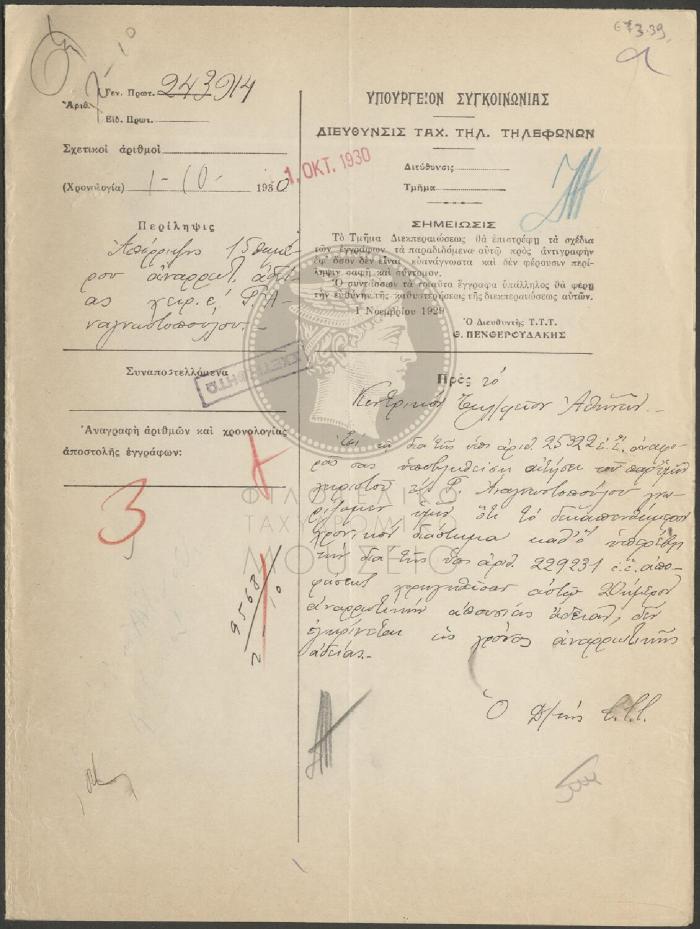 673.39.
Γεν. Πρωτ. 243914
Ἀριθ.
Εἰδ. Πρωτ.
Σχετικοὶ ἀριθμοὶ
(Χρονολογία) 1-10- 1930
1. ΟΚΤ. 1930
Περίληψις
Ἀπόρριψις 15θημέ
ρου ἀναρρωτ. ἀδεί
ας χειρ. ε΄ Γ. Ἀ-
ναγνωστοπούλου.-
Συναποστελλόμενα
Ἀναγραφὴ ἀριθμῶν καὶ χρονολογίας
ἀποστολῆς ἐγγράφων:
3
9568
ΥΠΟΥΡΓΕΙΟΝ ΣΥΓΚΟΙΝΩΝΙΑΣ
ΔΙΕΥΘΥΝΣΙΣ ΤΑΧ. ΤΗΛ. ΤΗΛΕΦΩΝΩΝ
Διεύθυνσις
Τμῆμα
ΣΗΜΕΙΩΣΙΣ
Τὸ Τμῆμα Διεκπεραιώσεως θὰ ἐπιστρέφῃ τὰ σχέδια
τῶν ἐγγράφων τὰ παραδιδόμενα αὐτῷ πρὸς ἀντιγραφὴν
ἐφ' ὅσον δὲν εἶναι εὐανάγνωστα καὶ δὲν φέρουσιν περί-
ληψιν σαφῆ καὶ σύντομον.
Ὁ συντάσσων τὰ τοιαῦτα ἔγγραφα ὑπάλληλος θὰ φέρῃ
τὴν εὐθύνην τῆς καθυστερήσεως τῆς διεκπεραιώσεως αὐτῶν.
1 Νοεμβρίου 1929
Ὁ Διευθυντὴς Τ.Τ.Τ.
Θ. ΠΕΝΘΕΡΟΥΔΑΚΗΣ
Πρὸς τὸ
Κεντρικὸν Τηλ/φεῖον Ἀθηνῶν.-
Ἐπὶ τῇ διὰ τῆς ὑπ' ἀριθ. 25322 ἐ.ἔ. ἀναφο-
ρᾶς σας ὑποβληθείσῃ αἰτήσει τοῦ παρ' ὑμῖν
χειριστοῦ Γ. Ἀναγνωστοπούλου γνω-
ρίζομεν ὑμῖν ὅτι τὸ δεκαπενθήμερον
χρονικὸν διάστημα καθ' ὃ ὑπερέβη
τὴν διὰ τῆς ὑπ' ἀριθ. 229231 ἐ.ἔ. ἀπο-
φάσεως χορηγηθεῖσαν αὐτῷ 20ήμερον
ἀναρρωτικὴν ἀπουσίας ἄδειαν, δὲν
ἐγκρίνεται ὡς χρόνος ἀναρρωτικῆς
ἀδείας.-
Ὁ Δ/τὴς Τ.Τ.Τ.
ΦΙΛΟΤΕΛΙΚΟ
ΤΑΧΥΔΡΟΜΙΚΟ
ΜΟΥΣΕΙΟ